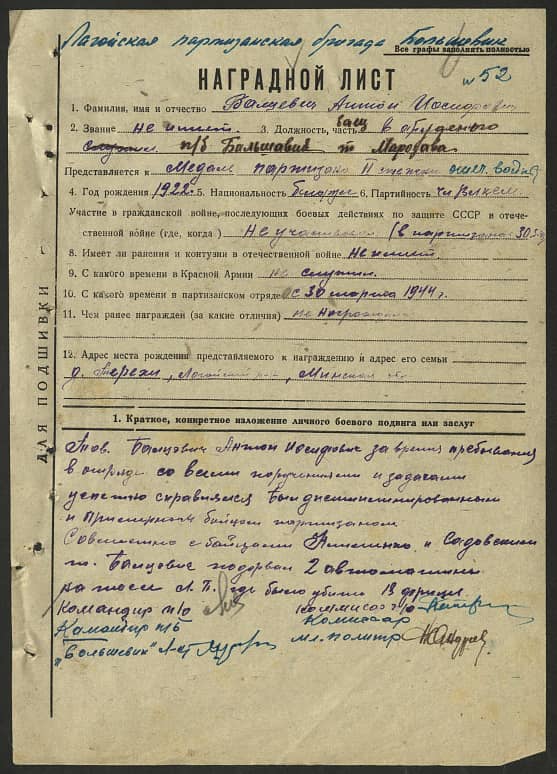 Лагойская партизанская бригада Большевик
Все графы заполнять полностью
№52
НАГРАДНОЙ ЛИСТ
1. Фамилия, имя и отчество Банцевич Антон Иосифович
2. Звание не имеет. 3. Должность, часть боец
п/б Большавик
Представляется к Медаль партизана II степени отеч. войны
4. Год рождения 1922г. 5. Национальность 6. Партийность чл. ВЛКСМ.
Участие в гражданской войне, послеующих боевых действиях по защите СССР и отече-
ственной войне (где, когда) Не участвовал (в партизанах 30.3
8. Имеет ли ранения и контузии в отечественной войне Не имеет.
9. С какого времени в Красной Армии не служил.
10. С какого времени в партизанском отряде с 30 марта 1944г.
11. Чем ранее награжден (за какие отличия) не награжден
12. Адрес места рождения представляемого к награждению и адрес его семьи
д. Терехи, Логойский р-н, Минская
ДЛЯ ПОДШИВКИ
1. Краткое, конкретное изложение личного боевого подвига или заслуг
Тов. Банцевич Антон Иосифович за время пребывания
в отряде со всеми поручениями и задачами
успешно справлялся. Был дисциплинированным
и примерным бойцом партизаном
Совместно с бойцами и Садовским
т. Банцевич подорвал 2 автомашины
на шоссе Л. П. где было убито 13 фрицев.
Командир п/о Комиссар п/о
Командир п/б Комиссар
"Большевик" л-т мл. политр.